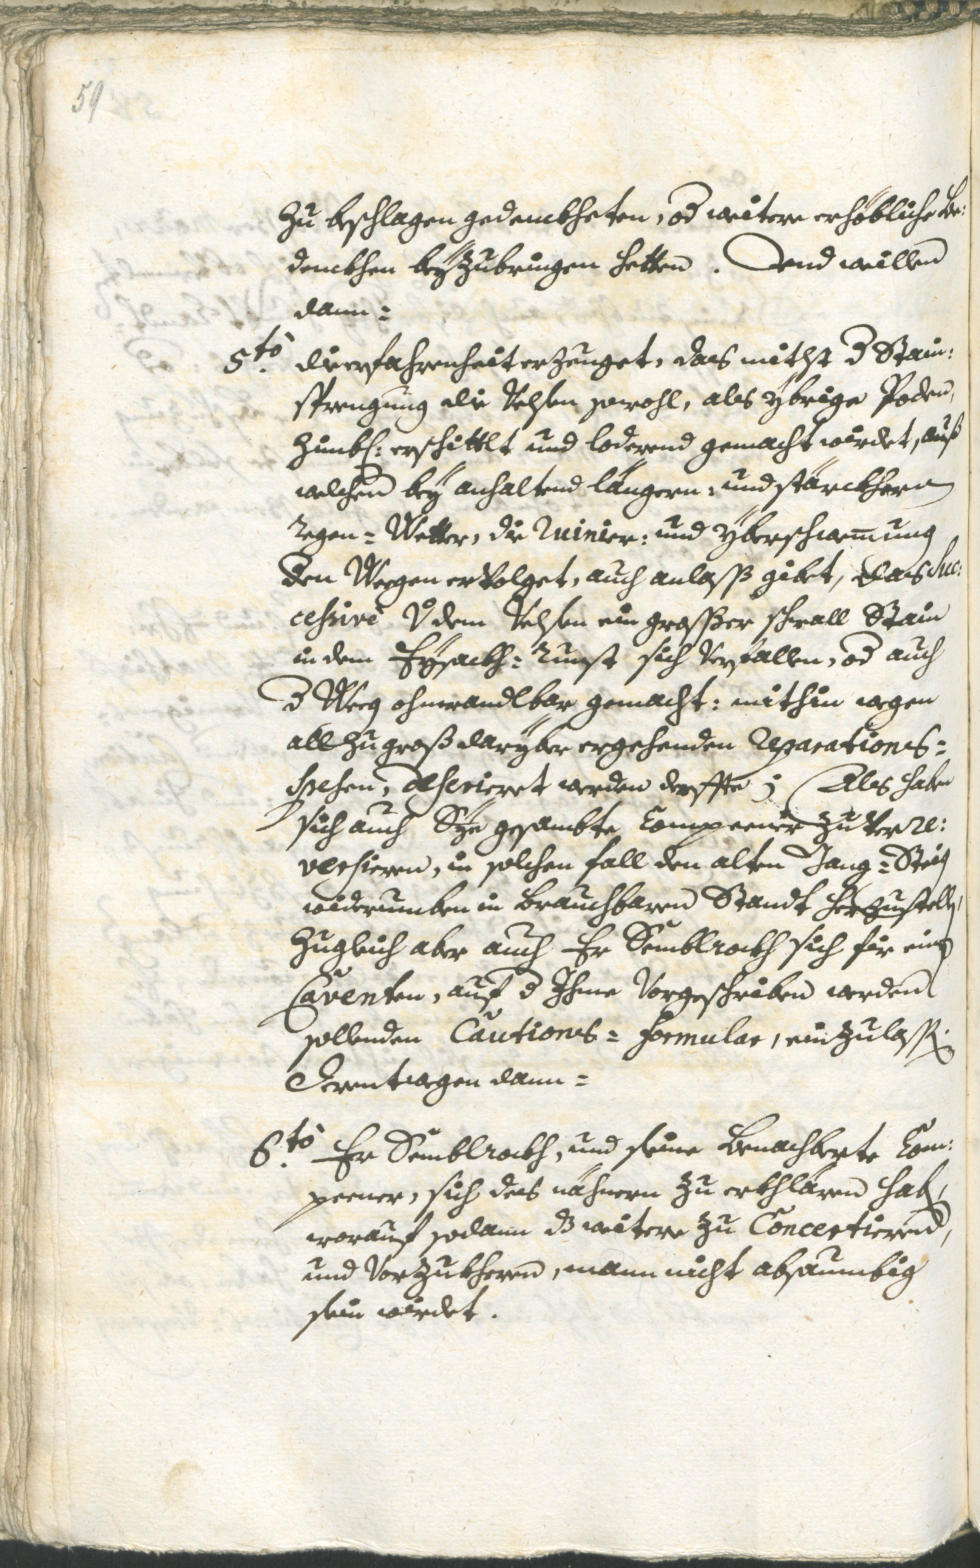 59
zu beschlagen gedenckheten, od weitere erhöbliche be:
denckhen beyzubringen hetten. Und weillen
dann=
5.to die erfahrenheit erzeuget, das mitlst d Stain:
sprengung die Velsen sowohl, als ybrige Poden,
zimbl: erschittlt und loderend gemacht würdet, auß
welchen bey anhaltend längern: und stärckhern
Regen= Wetter, die Ruinier: und yberschwemung
den Weegen ervolget, auch anlass gibet, das Suc:
cessivè v dem Velsen ein grosser schrall Stain
in dem Eysackh= Runst sich verfallen, od auch
d Weeg ohnwandlbar gemacht: mithin wegen
all zu groß daryber ergehenden Reparations=
spesen, deserieret werden derffte; Als haben
sich auch Sye gesambte Compeener zu verre:
versieren, in solchen fall den alten Jang= Steig
widerumben in brauchbaren Standt herzustellen,
zugleich aber auch Er Semblrockh sich für einen
Caventen, auf d Ihme vorgeschriben werden
sollenden Cautions= Formular, einzulassen.
Derentwegen dann=
6.to Er Semblrockh, und seine benachberte Com:
peener, sich des nähern zu erkhlären haben,
worauf sodann ds weitere zu Concertieren,
und vorzukheren, mann nicht absaumbig
sein würdet.